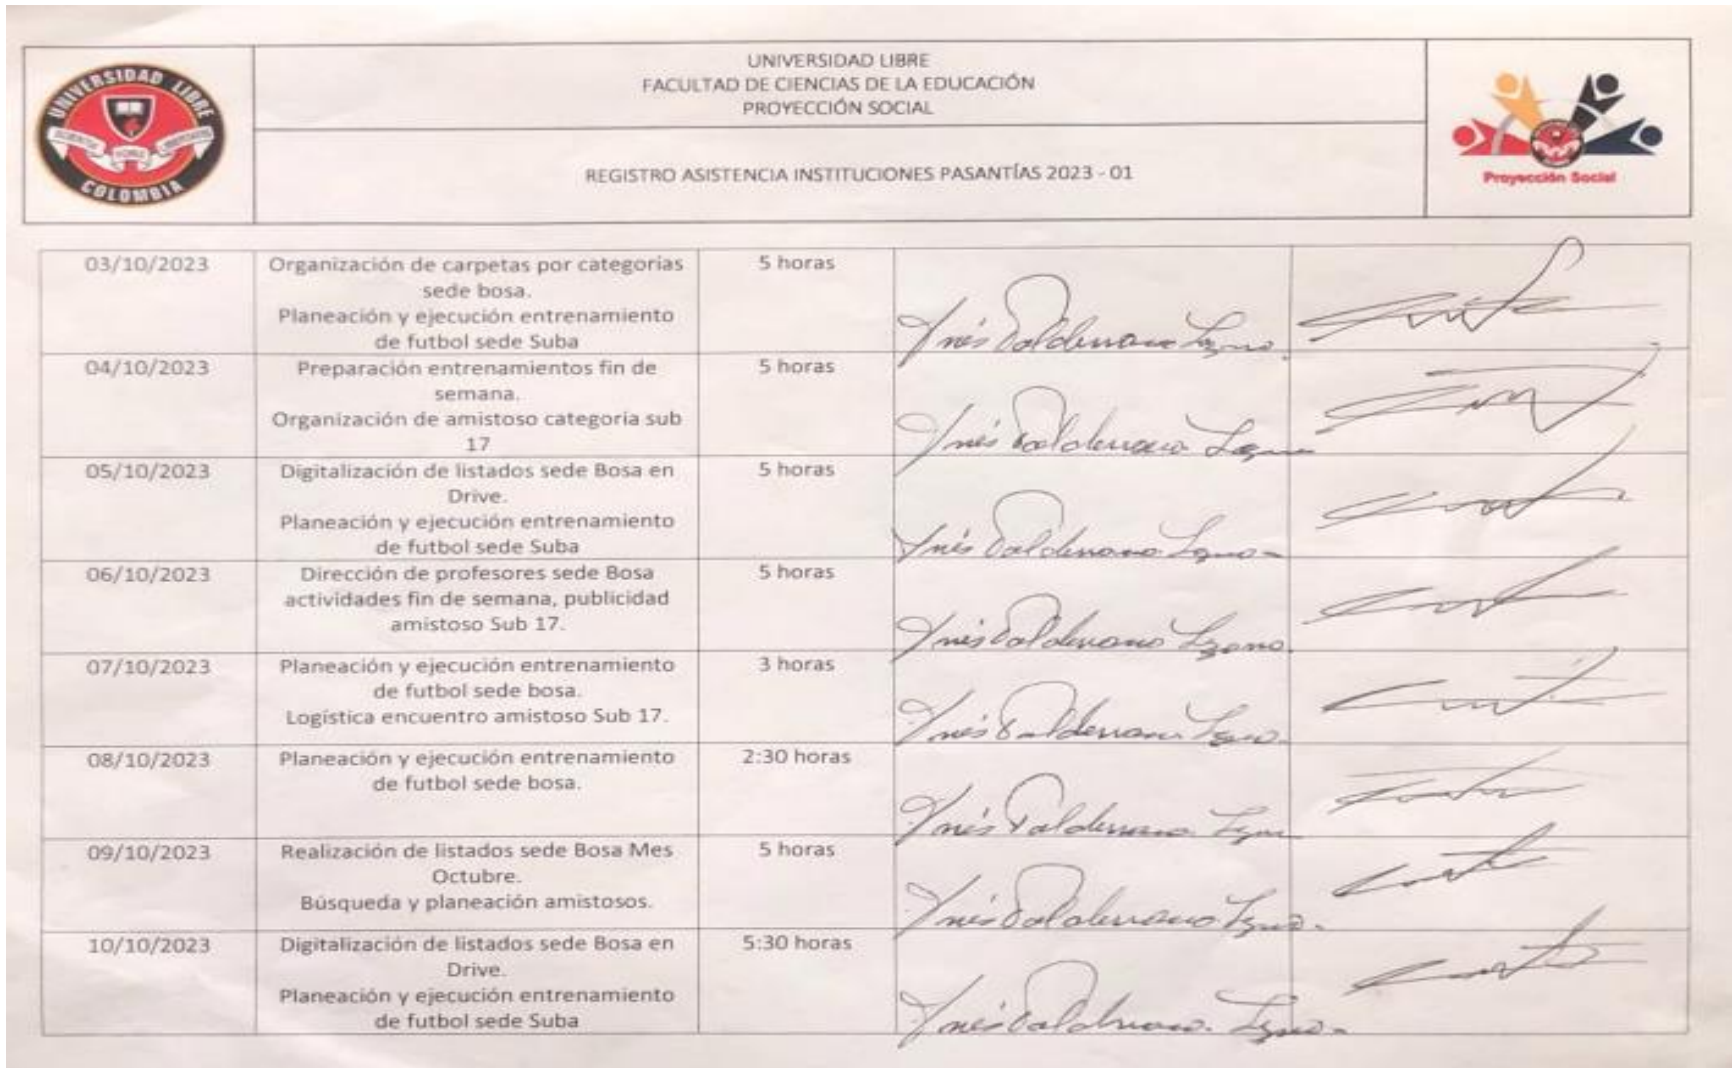 UNIVERSIDAD LIBRE
COLOMBIA
UNIVERSIDAD LIBRE
FACULTAD DE CIENCIAS DE LA EDUCACIÓN
PROYECCIÓN SOCIAL
REGISTRO ASISTENCIA INSTITUCIONES PASANTÍAS 2023 - 01
Proyección Social
03/10/2023
Organización de carpetas por categorias
sede bosa.
Planeación y ejecución entrenamiento
de futbol sede Suba
5 horas
Inés Valderrama Lozano
04/10/2023
Preparación entrenamientos fin de
semana.
Organización de amistoso categoria sub
17
5 horas
Inés Valderrama Lozano
05/10/2023
Digitalización de listados sede Bosa en
Drive.
Planeación y ejecución entrenamiento
de futbol sede Suba
5 horas
Inés Valderrama Lozano
06/10/2023
Dirección de profesores sede Bosa
actividades fin de semana, publicidad
amistoso Sub 17.
5 horas
Inés Valderrama Lozano
07/10/2023
Planeación y ejecución entrenamiento
de futbol sede bosa.
Logística encuentro amistoso Sub 17.
3 horas
Inés Valderrama Lozano
08/10/2023
Planeación y ejecución entrenamiento
de futbol sede bosa.
2:30 horas
Inés Valderrama Lozano
09/10/2023
Realización de listados sede Bosa Mes
Octubre.
Búsqueda y planeación amistosos.
5 horas
Inés Valderrama Lozano
10/10/2023
Digitalización de listados sede Bosa en
Drive.
Planeación y ejecución entrenamiento
de futbol sede Suba
5:30 horas
Inés Valderrama Lozano